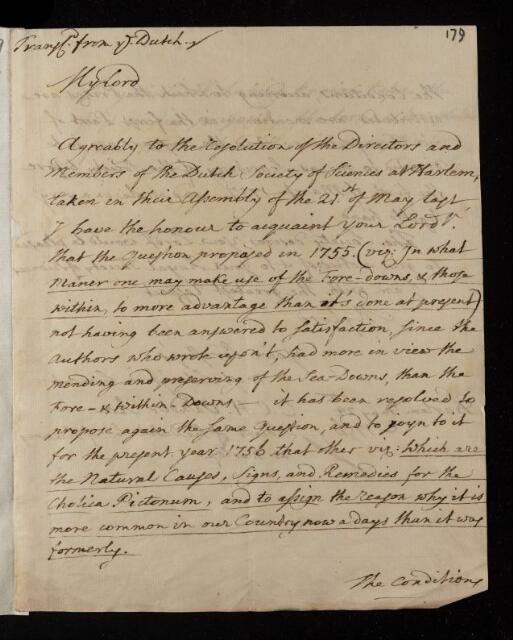 Transl. from ye. Dutch.
179
My Lord
Agreably to the Resolution of the Directors and
Members of the Dutch Society of Siences at Harlem,
taken in their Assembly of the 21st of May last
I have the honour to acquaint your Lordp.
that the Question proposed in 1755. (viz: In what
maner one may make use of the Fore-downs, & those
within, to more advantage than is done at present)
not having been answered to satisfaction, since the
Authors who wrote upon't, had more in view the
mending and preserving of the Sea-Downs, than the
Fore- & within-Downs – it has been resolved to
propose again the same Question, and to joyn to it
for the present year 1756 that other viz: Which are
the Natural Causes, Signs, and Remedies for the
Cholica Pictonum, and to assign the reason why it is
more common in our Country now a days than it was
formerly.
The Conditions